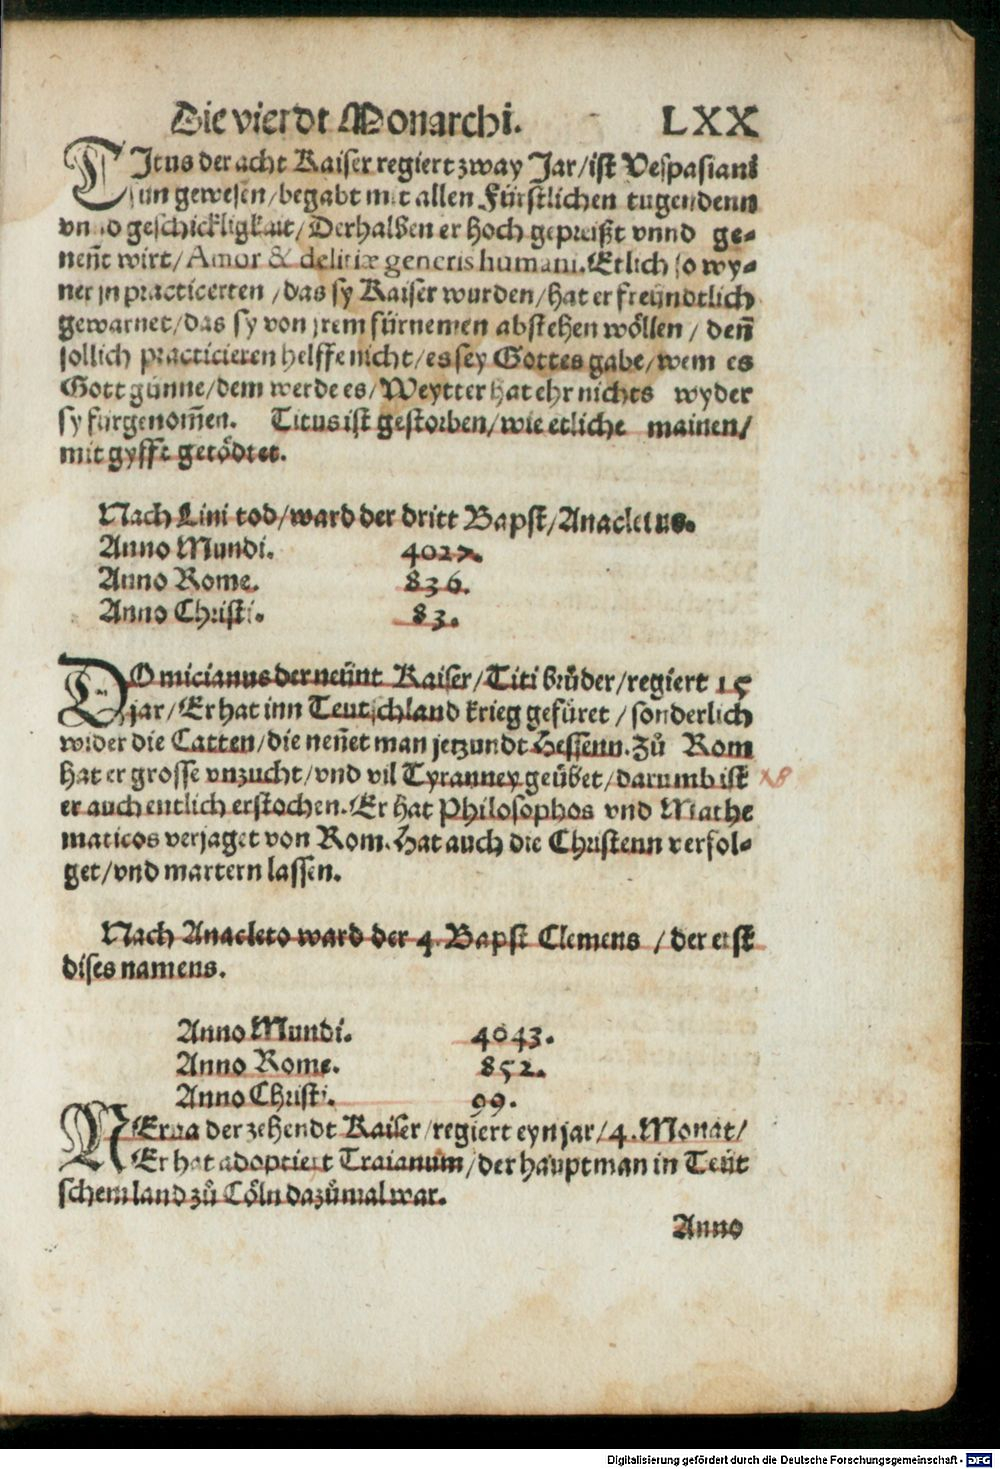 Die vierdt Monarchi. LXX
TItus der acht Kaiser regiert zway Jar/ist Vespasiani
sun gewesen/begabt mit allen Fürstlichen tugendenn
vnnd geschickligkait/Derhalben er hoch gepreißt vnnd ge-
nen̄t wirt/Amor & delitiæ generis humani. Etlich so wy-
ner jn practicerten/das sy Kaiser wurden/hat er freündtlich
gewarnet/das sy von jrem fürnemen abstehen wöllen/den̄
sollich practicieren helffe nicht/es sey Gottes gabe/wem es
Gott günne/dem werde es/Weytter hat ehr nichts wyder
sy fürgenom̄en. Titus ist gestorben/wie etliche mainen/
mit gyfft getödtet.
Nach Lini tod/ward der dritt Bapst/Anacletus.
Anno Mundi. 4027.
Anno Rome. 836.
Anno Christi. 83.
DOmicianus der neünt Kaiser/Titi brůder/regiert 15
jar/Er hat inn Teutschland krieg gefüret/sonderlich
wider die Catten/die nen̄et man jetzundt Hessenn. Zů Rom
hat er grosse vnzucht/vnd vil Tyranney geübet/darumb ist
er auch entlich erstochen. Er hat Philosophos vnd Mathe
maticos verjaget von Rom. Hat auch die Christenn verfol-
get/vnd martern lassen.
Nach Anacleto ward der 4. Bapst Clemens/der erst
dises namens.
Anno Mundi. 4043.
Anno Rome. 852.
Anno Christi. 99.
NErua der zehendt Kaiser/regiert eyn jar/4. Monat/
Er hat adoptiert Traianum/der hauptman in Teüt
schem land zů Cöln dazůmal war.
Anno
Digitalisierung gefördert durch die Deutsche Forschungsgemeinschaft - DFG